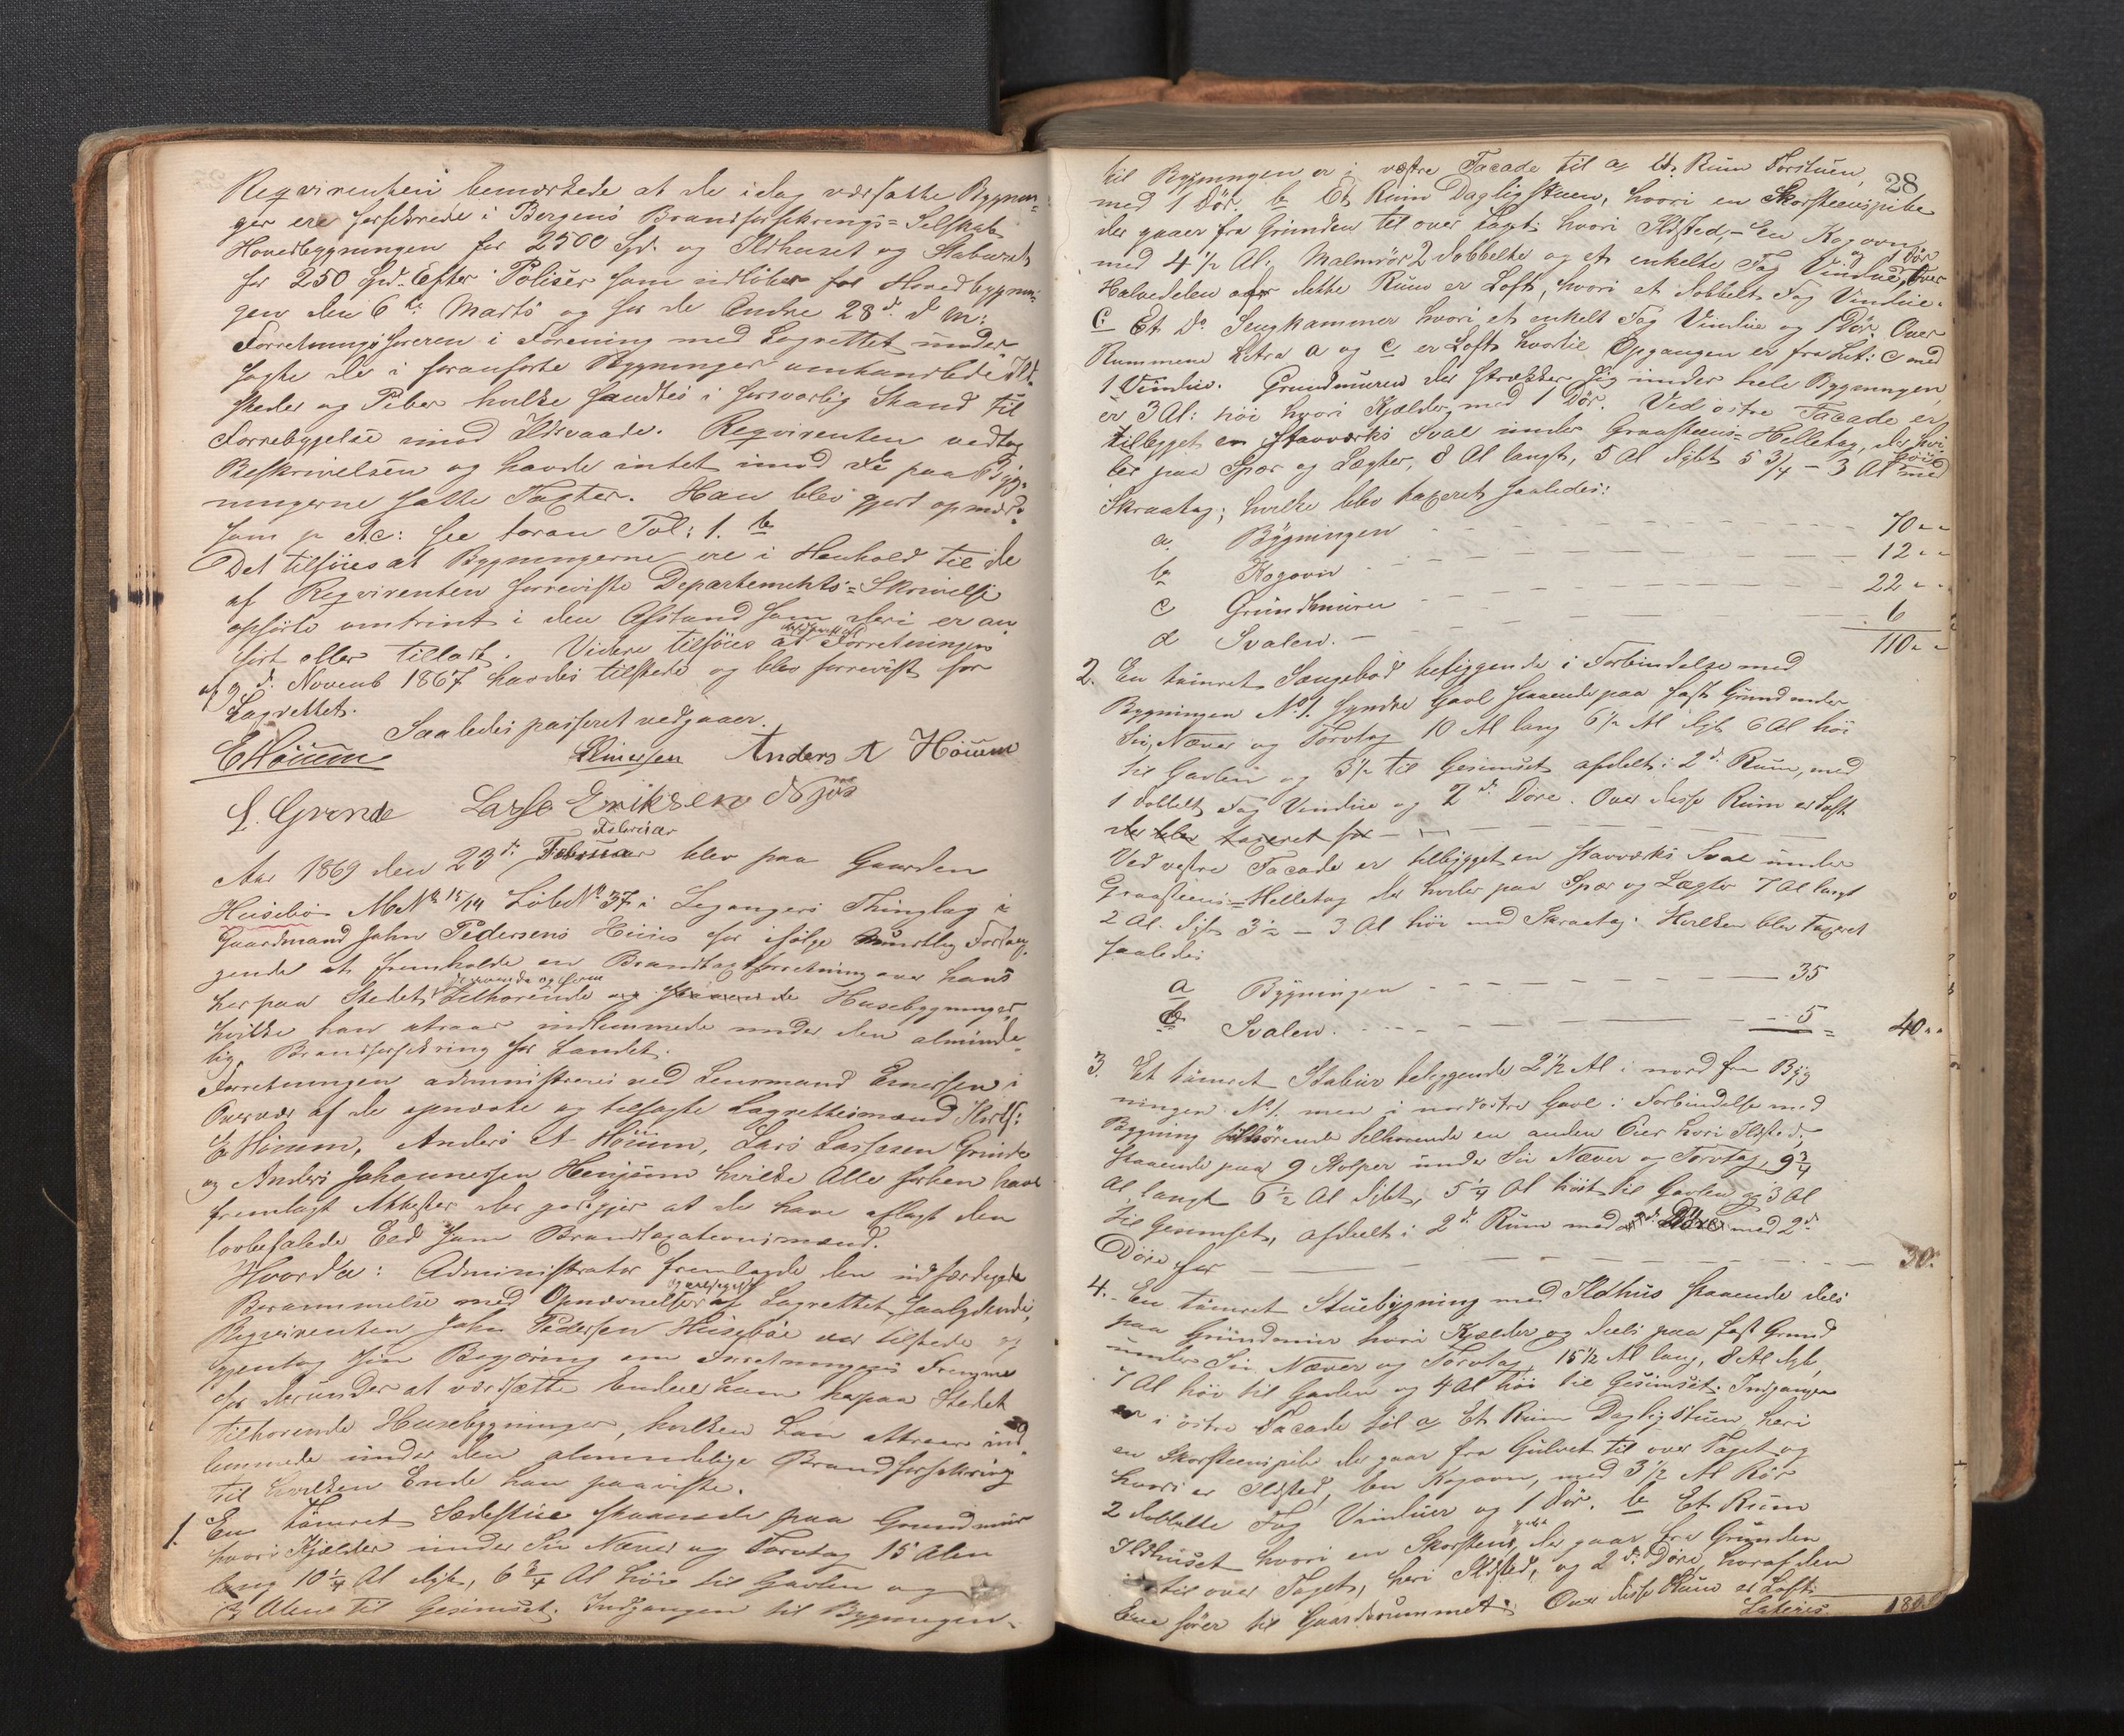 Reqvirenten bemærkede at de idag værdsatte Bygnin-
ger ere forsikrede i Bergens Brandforsikrings-Selskab
Hovedbygningen for 2500 Spd. og Ildhuset og Staburet
for 250 Spd. Efter Poliser som udløber for Hovedbygnin-
gen den 6te Marts og for de Andre 28d. d. M:
Forretningsføreren i Forening med Lagrettet under-
søgte de i foranførte Bygninger omhandlede Ild-
steder og Piber hvilke fandtes i forsvarlig Stand til
Forrebyggelse imod Ildsvaade. Reqvirenten vedtog
Beskrivelsen og havde intet imod de paa Byg-
ningerne satte Taxter. Han blev gjort opmærk-
som p etc: see foran Fol: 1. b
Det tilføies at Bygningerne ere i Henhold til de
af Reqvirenten forreviste Departements-Skrivelse
opførte omtrint i den Afstand som deri er an-
ført eller tilladt. Videre tilføies at Forretningen
af 9 d. Novemb 1867 havdes tilstede og blev forrevist for
Lagrettet.
Saaledes passeret vedgaaer.
EHöium Einersen Anders A Höium
L. Grinde Lasse Eriksen Njøs
Februar
Aar 1869 den 23d. Februar blev paa Gaarden
Husebø M No 15/14 Løbe No 37 i Leganger Thinglag i
Gaardmand John Pedersens Huus for ifølge Mundtlig Forlan-
gende at fremholde en Brandtaxtforretning over hans
her paa Stedet tilhørende og staaende Husebygninger
hvilke han attraar indlemmede under den alminde-
lig. Brandforsikring for Landet.
Forretningen administreres ved Lensmand Einersen i
Overvær af de opnævnte og tilsagte Lagrettesmænd
E Höium, Anders A Höium, Lars Lassesen Grinde
og Anders Johannessen Henjum hvilke Alle forhen have
fremlagt Attester der godgjør at de have aflagt den
lovbefalede Eed som Brandtaxationsmænd.
Hvorda: Administrator fremlagde den udfærdigede
Berammelse med Opnævnelse af Lagrettet saalydende,
Reqvirenten John Pedersen Husebøe var tilstede og
gjentog sin Begjering om Forretningens Fremme
for derunder at værdsætte Endeel ham her paa Stedet
tilhørende Husebygninger, hvilken han attraar ind-
lemmede under den almindelige Brandforsikring
til hvilken Ende han paaviste.
1. En tömret Sædestue staaende paa Grundmur
hvori Kjælder under Su Næver og Torvtag 15 Alen
lang 10 1/4 Al dyb, 6 3/4 Al høie til Gavlen og
Alene til Gesimset. Indgangen til Bygningen
28
til Bygningen er i vestre Facade til a, Et Rum Forstuen,
med 1 Dör. b Et Rum Dagligstuen, hvori en Skorsteenspibe
der gaaer fra Grunden til over Taget hvori Ildsted, En Kogovn
med 4 1/2 Al: Malmrör 2 dobbelte og et enkelte Fag Vindue, og 1 Dør Over
Halvedelen af dette Rum er Loft, hvori et dobbelt Fag Vindue.
C: Et Do Sengkammer hvori et enkelt Fag Vindue og 1 Dør. Over
Rummene Litra a og c er Loft hvortil Opgangen er fra Lit: c med
1 Vindue. Grundmuren der strækker sig under hele Bygningen,
er 3 Al: höi hvori Kjælder med 1 Dör. Ved östre Facade er
tilbygget en Stavværks Sval under Graasteens-Helletag, der hvi-
ler paa Spær og Lægter, 8 Al langt, 5 Al dybt 5 3/4 - 3 Al høit med
Skraatag; hvilke blev taxeret saaledes:
a Bygningen 70 "
b Kogovn 12 "
c Grundmuren 22 "
d Svalen. 6
110 "
2. En tömret Sængebod beliggende i Forbindelse med
Bygningen No 1. Syndre Gavl staaende paa fast Grund under
Su, Næver og Torvtag 10 Al lang 6 1/2 Al dyb 6 Al höi
til Gavlen og 3 1/2 til Gesimset afdelt i 2d. Rum, med
1 dobbelt Fag Vindue og 2d. Döre. Over disse Rum er Loft
der blev taxeret for
Ved vestre Facade er tilbygget en Stavværks Sval under
Graasteens-Helletag der hviler paa Spær og Lægter 7 Al langt
2 Al. dybt 3 1/2 - 3 Al höi med Skraatag. Hvilken blev Taxeret
saaledes
a Bygningen 35
b Svalen. 5 = 40 "
3. Et tömret Stabur beliggende 2 1/2 Al i nord fra Byg
ningen No 1. men i nordöstre Gavl i Forbindelse med
Bygning tilhørende en anden Eier hvori Ildsted.
staaende paa 9 Stolper under Su Næver og Torvtag, 9 3/4
Al langt 6 1/2 Al dybt, 5 1/4 Al höit til Gavlen og 3 Al
til Gesimset, afdeelt i 2d. Rum med med 2d.
Döre for 30.
4. En tömret Stuebygning med Ildhus staaende deels
paa Grundmur hvori Kjælder og deels paa fast Grund
under Su Næver og Torvtag, 15 1/2 Al lang, 8 Al dyb,
7 Al höi til Gavlen og 4 Al höi til Gesimset. Indgangen
er i östre Facade til a, Et Rum Dagligstuen, heri
en Skorsteenspibe der gaar fra Gulvet til over Taget og
hvori er Ildsted, en Kogovn, med 3 1/2 Al Rör
2 dobbelte Fag Vinduer og 1 Dör. b Et Rum
Ildhuset hvori en Skorsteenspibe der gaar fra Grunden
til over Taget, heri Ildsted, og 2d. Döre, hvoraf den
Ene förer til Gaardsrummet. Over disse Rum er Loft.
Lateris 180.